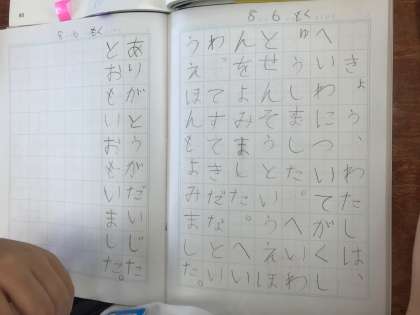 5.6 もく
きょう、わたしは、
へいわについてがくし
ゅうしました。へいわ
とせんそうというえほ
んをよみました。へい
わってすてきだなとい
うえほんもよみました。
5 6 もく
ありがとうがだいじだ
とおもいおもいました。